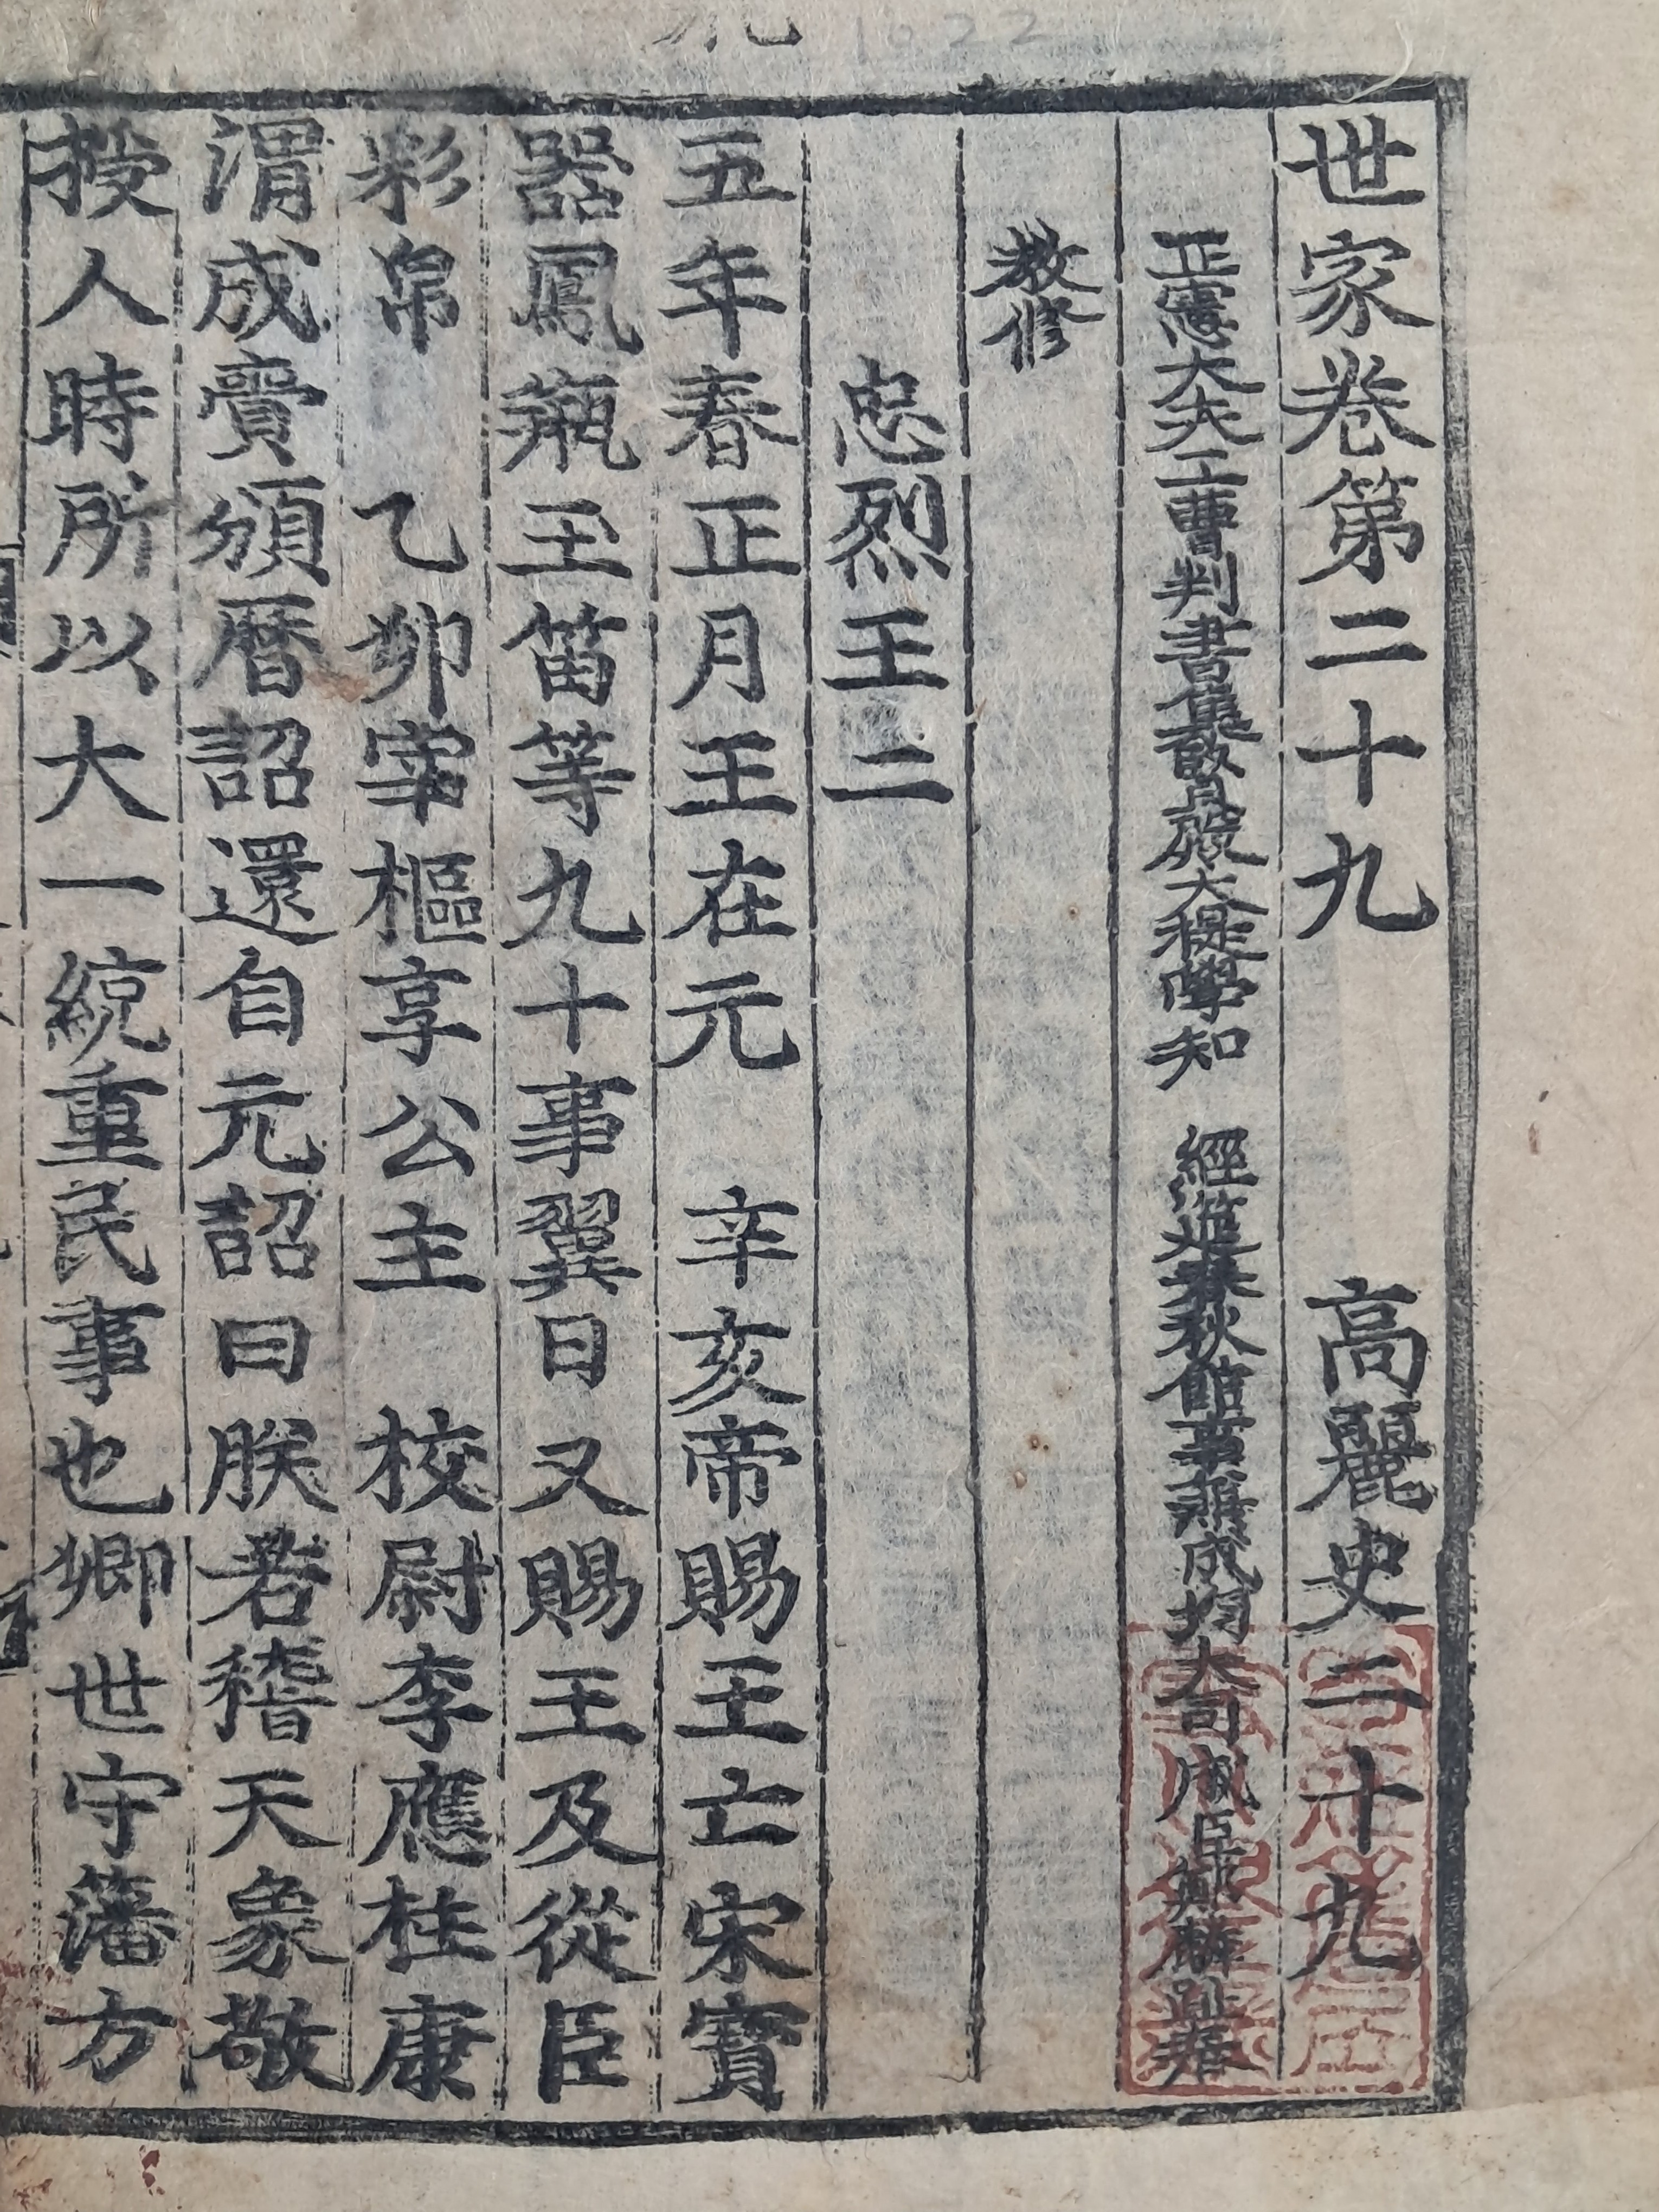 世家卷第二十九 高麗史二十九
正憲大夫工曹判書集賢殿大提學知 經筵春秋館事兼成均大司成臣鄭麟趾奉
敎修
忠烈王二
五年春正月王在元 辛亥帝賜王亡宋寶
器鳳甁玉笛等九十事翼日又賜王及從臣
彩帛 乙卯宰樞享公主 校尉李應柱康
渭成賫頒曆詔還自元詔曰朕若稽天象敬
授人時所以大一統重民事也卿世守藩方
1022